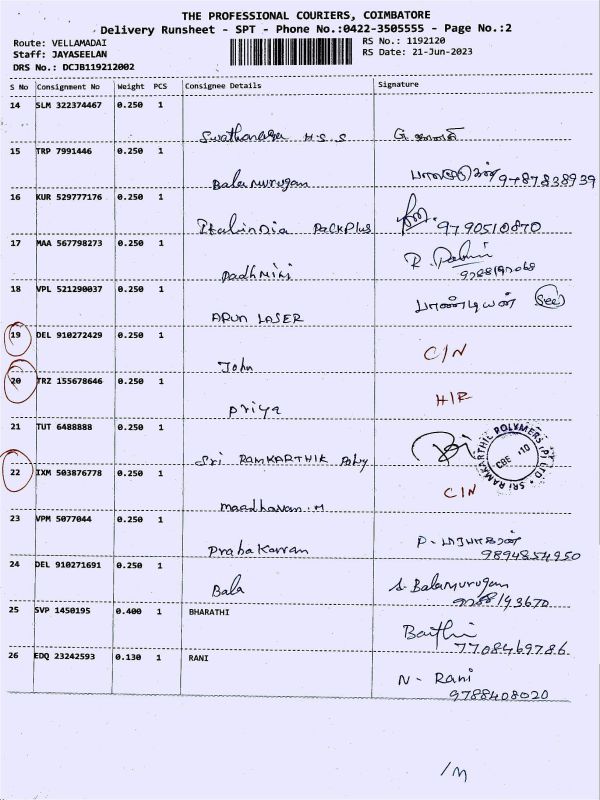 THE PROFESSIONAL COURIERS, COIMBATORE
Delivery Runsheet - SPT - Phone No.:0422-3505555 - Page No.:2
Route: VELLAMADAI RS No.: 1192120
Staff: JAYASEELAN RS Date: 21-Jun-2023
DRS No.: DCJB119212002
S No Consignment No Weight PCS Consignee Details Signature
14 SLM 322374467 0.250 1
H.S.S G.
15 TRP 7991446 0.250 1
Balamurugan 9487838939
16 KUR 529777176 0.250 1
PackPlus 9790510870
17 MAA 567798273 0.250 1
Padhmini R.
18 VPL 521290037 0.250 1
ARUN LASER பாண்டியன் See
19 DEL 910272429 0.250 1
John C/N
20 TRZ 155678646 0.250 1
Priya H/R
21 TUT 6488888 0.250 1
Sri RAMKARTHIK Poly
SRI RAMKARTHIC POLYMERS (P) LTD
CBE
22 IXM 503876778 0.250 1
Maadhavan.M C/N
23 VPM 5077044 0.250 1
Prabakarran P. பிரபாகரன்
9894854950
24 DEL 910271691 0.250 1
Bala S. Balamurugan
9288193670
25 SVP 1450195 0.400 1 BHARATHI
7708469786
26 EDQ 23242593 0.130 1 RANI
N - Rani
9788408020